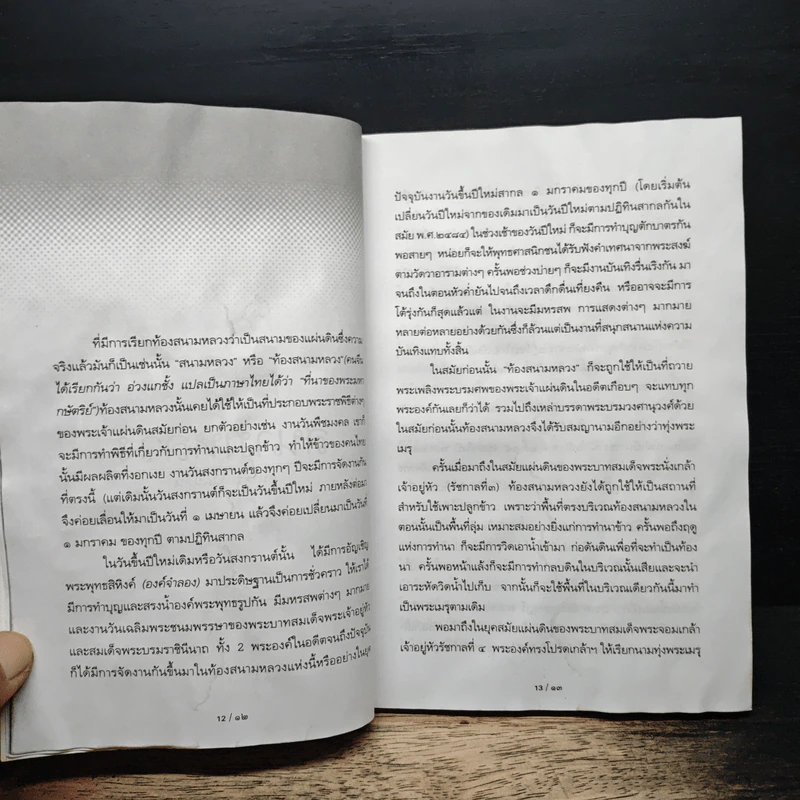 ที่มีการเรียกท้องสนามหลวงว่าเป็นสนามของแผ่นดินซึ่งความ
จริงแล้วมันก็เป็นเช่นนั้น "สนามหลวง" หรือ "ท้องสนามหลวง"(คนจีน
ได้เรียกกันว่า อ่วงแกชั้ง แปลเป็นภาษาไทยได้ว่า "ที่นาของพระมหา
กษัตริย์")ท้องสนามหลวงนั้นเคยได้ใช้ให้เป็นที่ประกอบพระราชพิธีต่างๆ
ของพระเจ้าแผ่นดินสมัยก่อน ยกตัวอย่างเช่น งานวันพืชมงคล เขาก็
จะมีการทำพิธีที่เกี่ยวกับการทำนาและปลูกข้าว ทำให้ข้าวของคนไทย
นั้นมีผลผลิตที่งอกเงย งานวันสงกรานต์ของทุกๆ ปีจะมีการจัดงานกัน
ที่ตรงนี้ (แต่เดิมนั้นวันสงกรานต์ก็จะเป็นวันขึ้นปีใหม่ ภายหลังต่อมา
จึงค่อยเลื่อนให้มาเป็นวันที่ ๑ เมษายน แล้วจึงค่อยเปลี่ยนมาเป็นวันที่
๑ มกราคม ของทุกปี ตามปฏิทินสากล
ในวันขึ้นปีใหม่เดิมหรือวันสงกรานต์นั้น ได้มีการอัญเชิญ
พระพุทธสิหิงค์ (องค์จำลอง) มาประดิษฐานเป็นการชั่วคราว ให้เราได้
มีการทำบุญและสรงน้ำองค์พระพุทธรูปกัน มีมหรสพต่างๆ มากมาย
และงานวันเฉลิมพระชนมพรรษาของพระบาทสมเด็จพระเจ้าอยู่หัว
และสมเด็จพระบรมราชินีนาถ ทั้ง 2 พระองค์ในอดีตจนถึงปัจจุบัน
ก็ได้มีการจัดงานกันขึ้นมาในท้องสนามหลวงแห่งนี้หรืออย่างในยุค
12 / ๑๒
ปัจจุบันงานวันขึ้นปีใหม่สากล ๑ มกราคมของทุกปี (โดยเริ่มต้น
เปลี่ยนวันปีใหม่จากของเดิมมาเป็นวันปีใหม่ตามปฏิทินสากลกันใน
สมัย พ.ศ.๒๔๘๔) ในช่วงเช้าของวันปีใหม่ ก็จะมีการทำบุญตักบาตรกัน
พอสายๆ หน่อยก็จะให้พุทธศาสนิกชนได้รับฟังคำเทศนาจากพระสงฆ์
ตามวัดวาอารามต่างๆ ครั้นพอช่วงบ่ายๆ ก็จะมีงานบันเทิงรื่นเริงกัน มา
จนถึงในตอนหัวค่ำยันไปจนถึงเวลาดึกดื่นเที่ยงคืน หรืออาจจะมีการ
โต้รุ่งกันก็สุดแล้วแต่ ในงานจะมีมหรสพ การแสดงต่างๆ มากมาย
หลายต่อหลายอย่างด้วยกันซึ่งก็ล้วนแต่เป็นงานที่สนุกสนานแห่งความ
บันเทิงแทบทั้งสิ้น
ในสมัยก่อนนั้น "ท้องสนามหลวง" ก็จะถูกใช้ให้เป็นที่ถวาย
พระเพลิงพระบรมศพของพระเจ้าแผ่นดินในอดีตเกือบๆ จะแทบทุก
พระองค์กันเลยก็ว่าได้ รวมไปถึงเหล่าบรรดาพระบรมวงศานุวงศ์ด้วย
ในสมัยก่อนนั้นท้องสนามหลวงจึงได้รับสมญานามอีกอย่างว่าทุ่งพระ
เมรุ
ครั้นเมื่อมาถึงในสมัยแผ่นดินของพระบาทสมเด็จพระนั่งเกล้า
เจ้าอยู่หัว (รัชกาลที่๓) ท้องสนามหลวงยังได้ถูกใช้ให้เป็นสถานที่
สำหรับใช้เพาะปลูกข้าว เพราะว่าพื้นที่ตรงบริเวณท้องสนามหลวงใน
ตอนนั้นเป็นพื้นที่ลุ่ม เหมาะสมอย่างยิ่งแก่การทำนาข้าว ครั้นพอถึงฤดู
แห่งการทำนา ก็จะมีการวิดเอาน้ำเข้ามา ก่อดันดินเพื่อที่จะทำเป็นท้อง
นา ครั้นพอหน้าแล้งก็จะมีการทำกลบดินในบริเวณนั้นเสียและจะนำ
เอาระหัดวิดน้ำไปเก็บ จากนั้นก็จะใช้พื้นที่ในบริเวณเดียวกันนี้มาทำ
เป็นพระเมรุตามเดิม
พอมาถึงในยุคสมัยแผ่นดินของพระบาทสมเด็จพระจอมเกล้า
เจ้าอยู่หัวรัชกาลที่ ๔ พระองค์ทรงโปรดเกล้าฯ ให้เรียกนามทุ่งพระเมรุ
13 / ๑๓